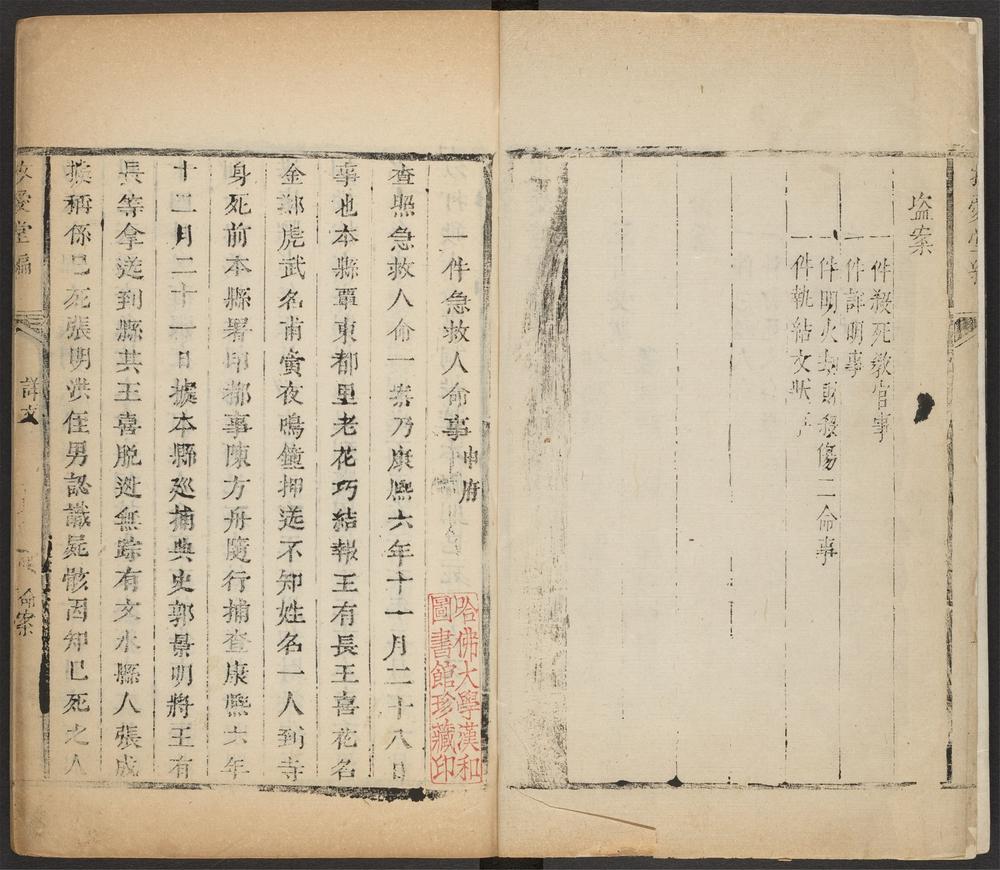 盜案
一件殺死教官事
一件詳明事
一件明火劫財殺傷二命事
一件執結文狀事
一件急救人命事 申府
查照急救人命一案乃康熙六年十一月二十八日
事也本縣覃東都里老花巧結報王有長王喜花名
金郝虎武名甫寅夜鳴鐘押送不知姓名一人到寺
身死前本縣署印都事陳方舟隨行捕查康熙六年
十二月二十一日據本縣廵捕典史郭景明將王有
長等拿送到縣其王喜脫逃無踪有文水縣人張成
據稱係巳死張明洪侄男認識屍骸因知巳死之人
愛堂編
詳文
命案
哈佛大學漢和
圖書館珍藏印